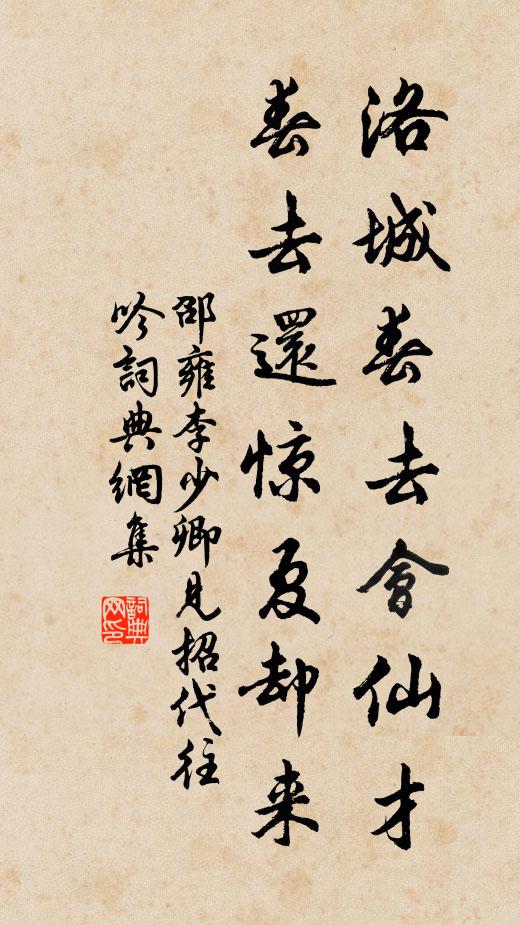 洛城春去會仙才
春去還惊夏却来
邵雍李少卿見招代往
吟詞典網集
詞典网印